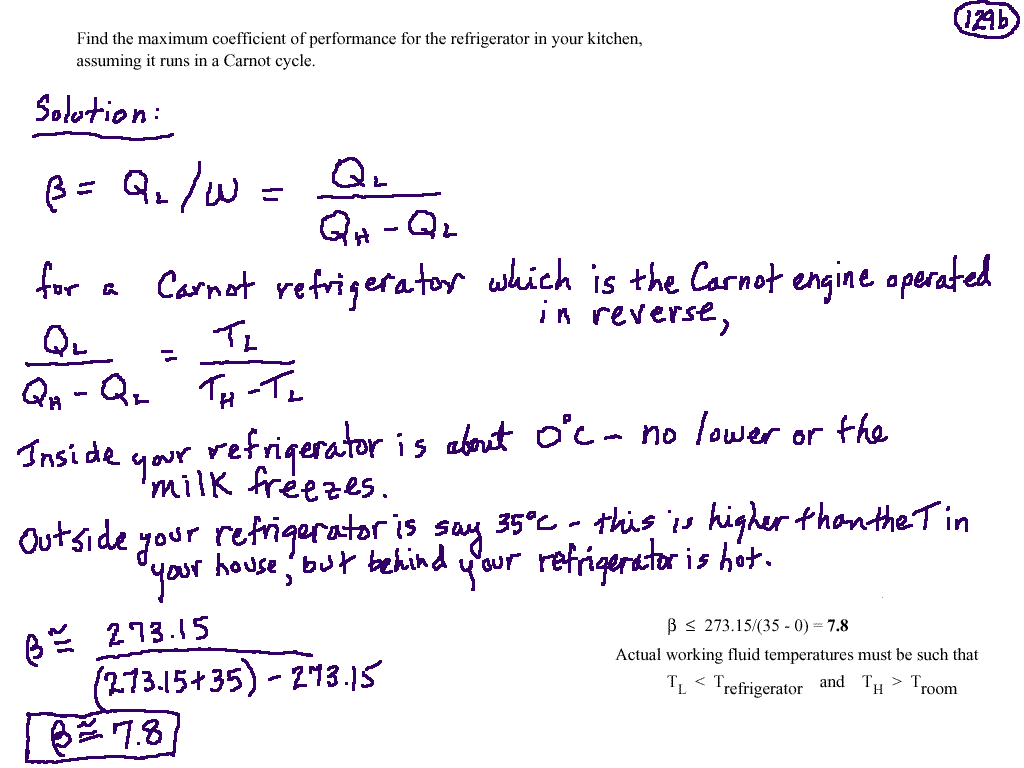 129b
Find the maximum coefficient of performance for the refrigerator in your kitchen,
assuming it runs in a Carnot cycle.
Solution:
β = Q_L / W = Q_L / (Q_H - Q_L)
for a Carnot refrigerator which is the Carnot engine operated
in reverse,
Q_L / (Q_H - Q_L) = T_L / (T_H - T_L)
Inside your refrigerator is about 0°C - no lower or the
milk freezes.
Outside your refrigerator is say 35°C - this is higher than the T in
your house, but behind your refrigerator is hot.
β ≅ 273.15 / ((273.15+35) - 273.15)
β ≅ 7.8
β ≤ 273.15/(35 - 0) = 7.8
Actual working fluid temperatures must be such that
T_L < T_refrigerator and T_H > T_room